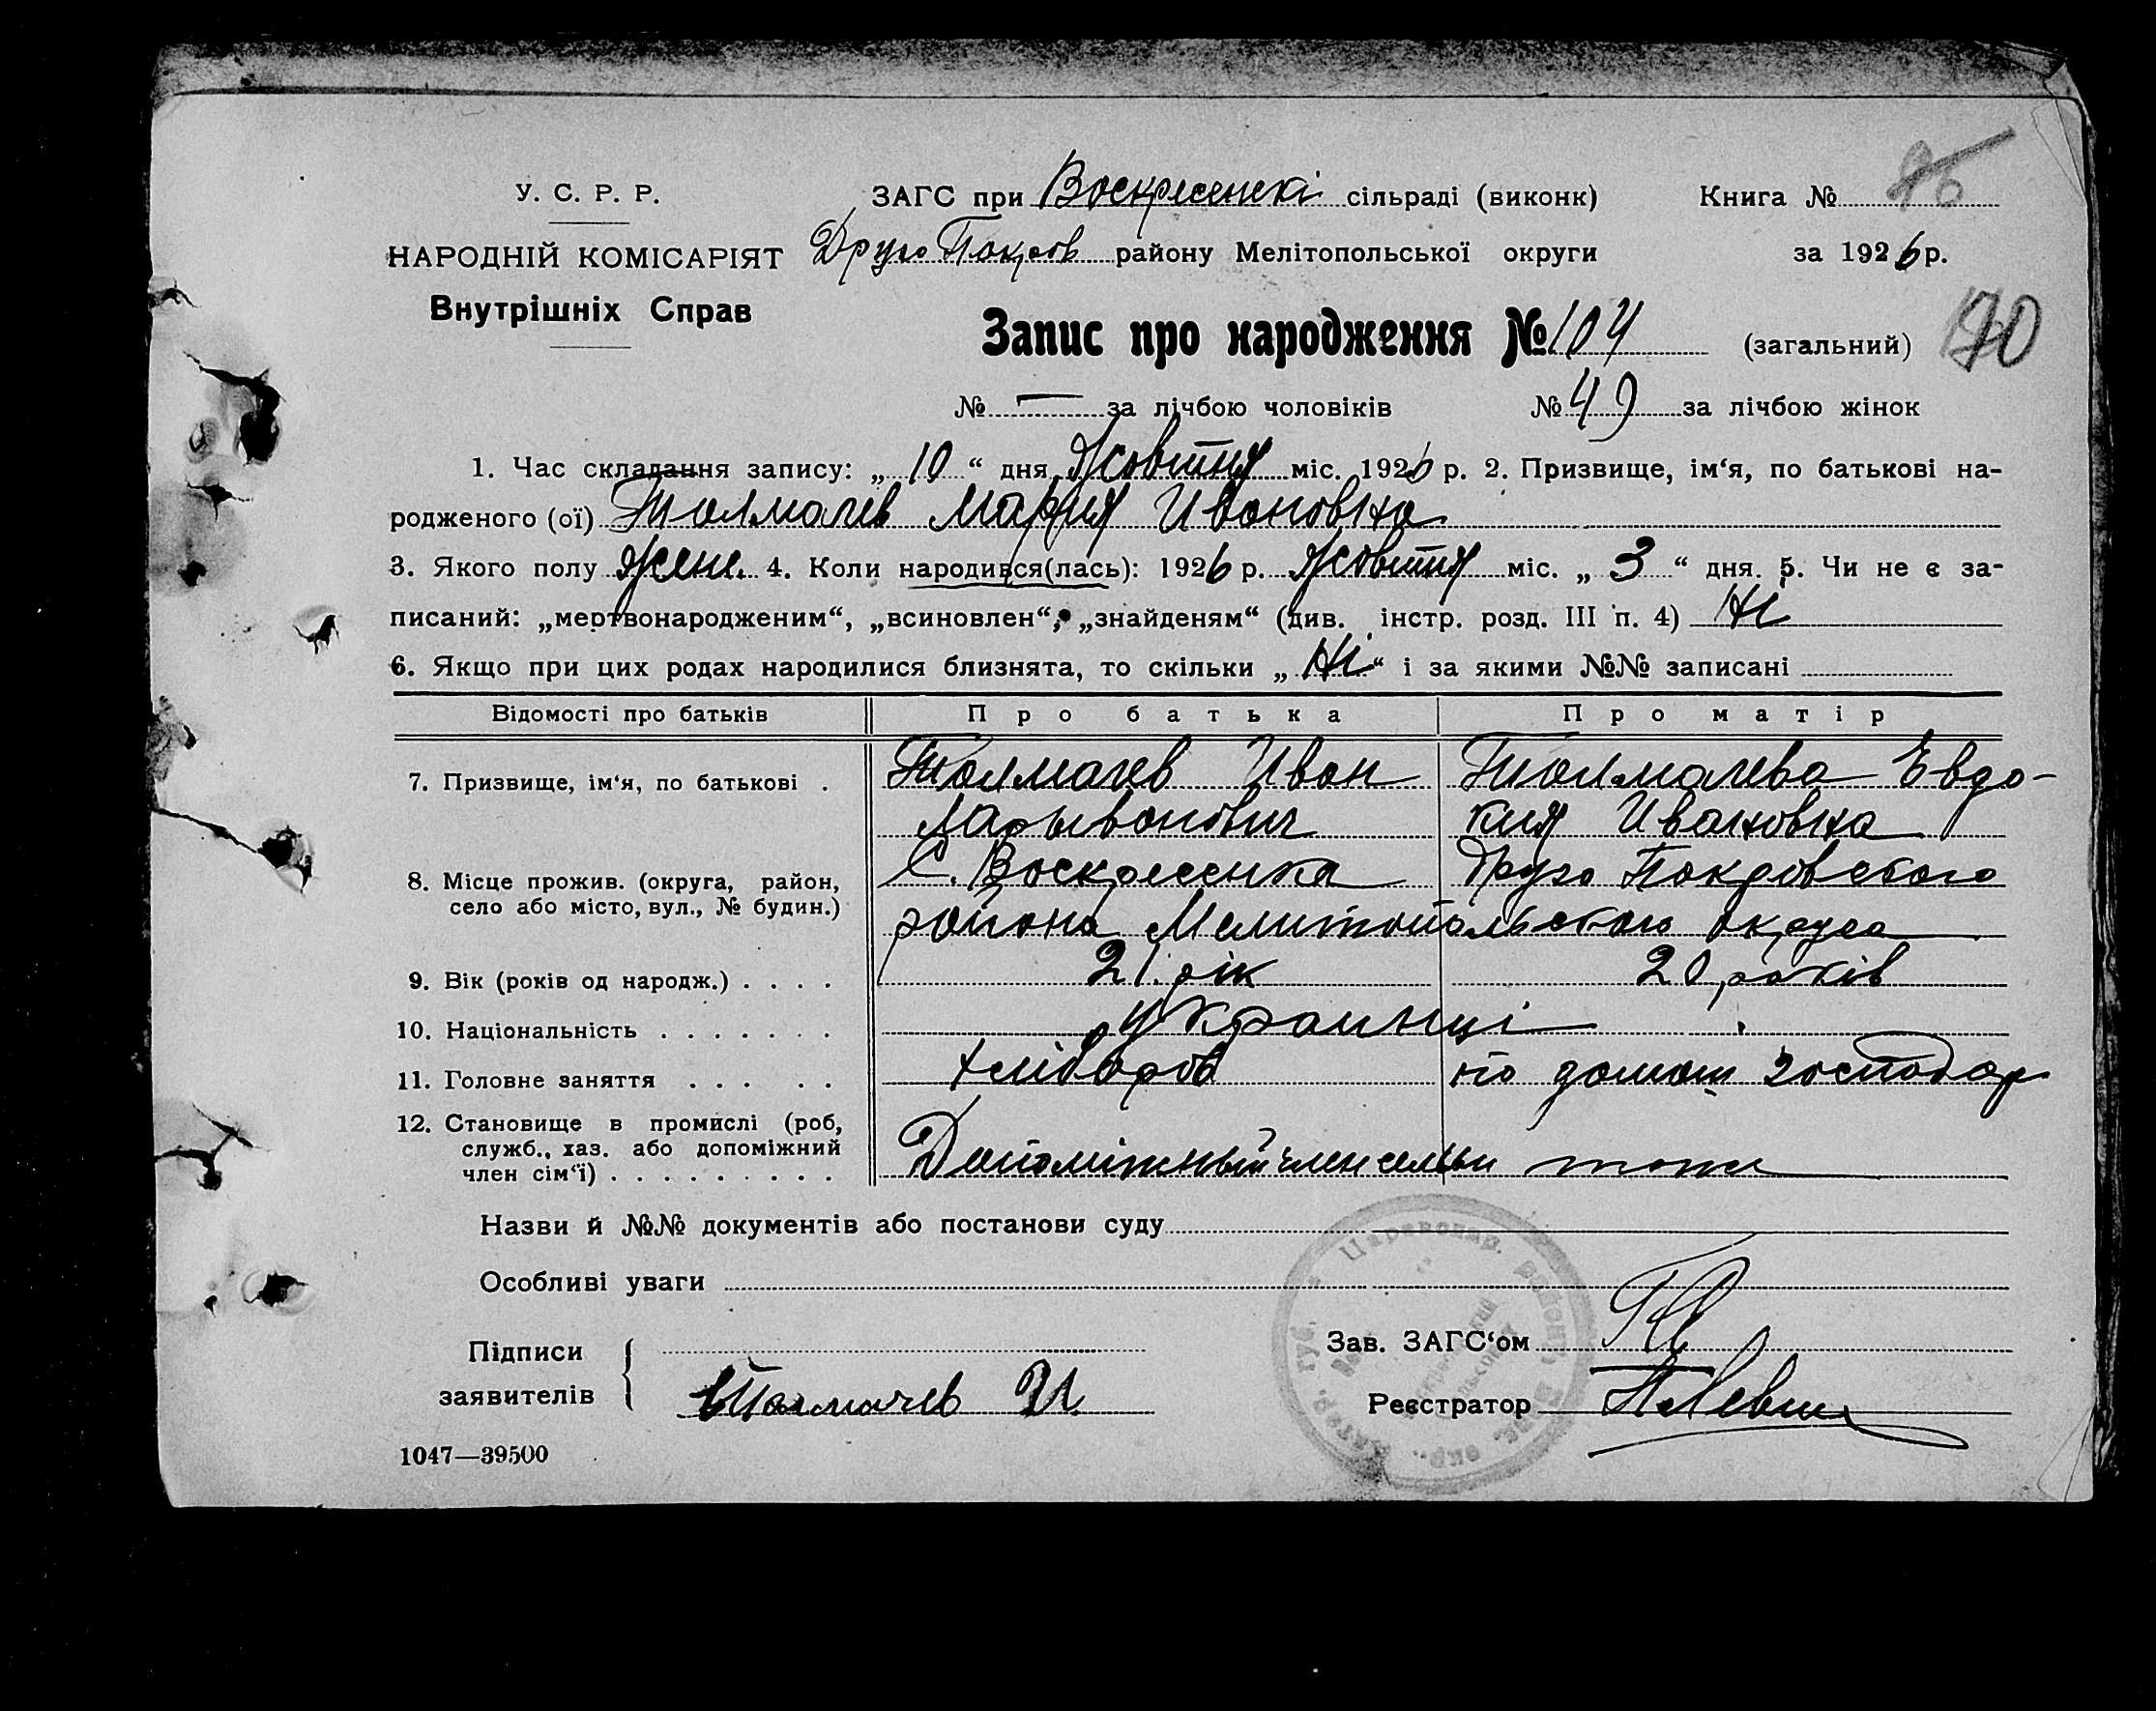 У. С. Р. Р.
НАРОДНІЙ КОМІСАРІЯТ
Внутрішніх Справ
ЗАГС при Воскресенскі сільраді (виконк)
Друго Покров району Мелітопольської округи
Книга №
за 1926 р.
Запис про народження № 104 (загальний)
№ — за лічбою чоловіків № 49 за лічбою жінок
1. Час складання запису: „ 10 “ дня Жовтня міс. 1926 р. 2. Призвище, ім‘я, по батькові на-
родженого (ої) Толмачев Мария Ивановна
3. Якого полу жен. 4. Коли народився(лась): 1926 р. Жовтня міс. „ 3 “ дня. 5. Чи не є за-
писаний: „мертвонародженим“, „всиновлен“, „знайденям“ (див. інстр. розд. III п. 4) Ні
6. Якщо при цих родах народилися близнята, то скільки „ Ні “ і за якими №№ записані
Відомості про батьків Про батька Про матір
7. Призвище, ім‘я, по батькові . Толмачев Иван Толмачева Евдо-
кия Ивановна
8. Місце прожив. (округа, район, С. Воскресенка Друго Покровского
село або місто, вул., № будин.) района Мелитопольского округа
9. Вік (років од народж.) . . . . 21 рік 20 років
10. Національність . . . . . . . Украинці
11. Головне заняття . . . . . хлібороб по домаш господар
12. Становище в промислі (роб,
служб., хаз. або допоміжний
член сім‘ї) . . . . . . . . . Допоміжный член семьи тоже
Назви й №№ документів або постанови суду
Особливі уваги
Підписи
заявителів Толмачев И.
Зав. ЗАГС‘ом
Реєстратор
1047—39500